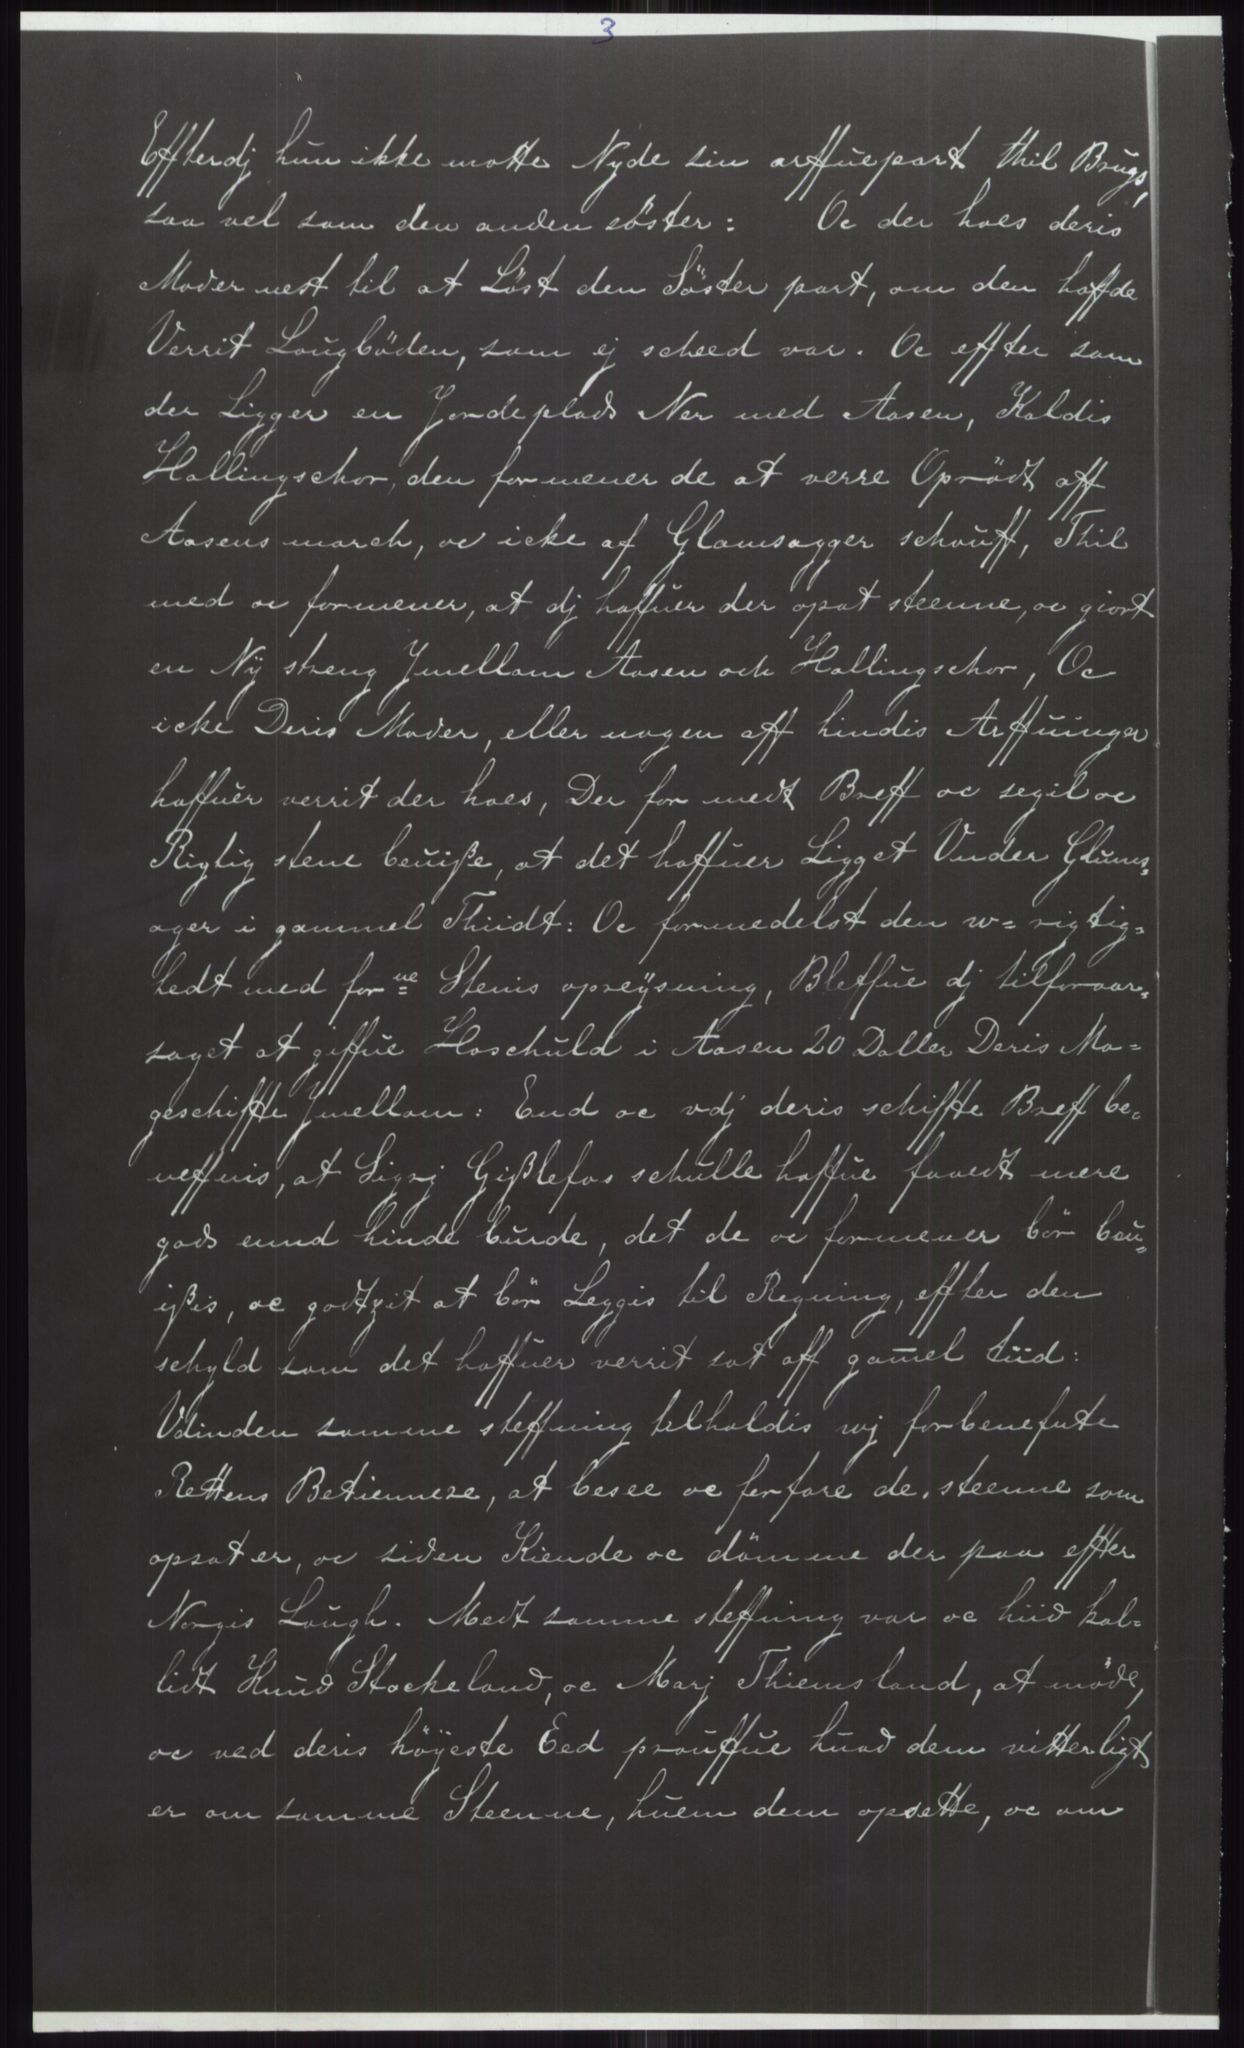 3
Effterdj hun ikke motte Nyde sin arffuepart thil Brugs,
saa vel som den anden söster: Oc der hoes deris
Moder nest til at Löst den Söster part, om den haffde
Verrit Lougböden, som ej scheed var. Oc effter som
der Ligger en Jordeplads Ner med Aasen, Kaldis
Hallingschor, den formener de at verre Oprödt aff
Aasens march, oc icke af Glamsagger schouff, Thil
med oc formener, at dj haffuer der opat steenne, oc giort
en Nÿ streng Jmellom Aasen och Hallingschor, Oc
icke Deris Moder, eller nogen aff hindis Arffuinger
haffuer verrit der hoes, Der for medt Breff oc segil oc
Rigtig stene beuiße, at det haffuer Ligget Vnder Glums=
ager i gammel Thiidt: Oc formedelst den w=rigtig=
hedt med forne Stenis opreÿsning, Bleffue dj tilforaar=
saget at giffue Haschuld i Aasen 20 Daller Deris Ma=
geschiffte Jmellom: End oc vdj deris schiffte Breff be=
neffnis, at Sigrj Gißlefos schulle haffue faaedt mere
gods ennd hinde burde, det de oc formener bör beu=
ißis, oc godtzit at bör Leggis til Regning, effter den
schyld som det haffuer verrit sat aff gam̄el tiid:
Vdinden samme steffning tilholdis wj forbenefnte
Rettens Betiennere, at besee oc forfare de steenne som
opsat er, oc siden Kiende oc dömme der paa effter
Norgis Lough. Medt samme steffning var oc hiid kal=
lidt Knud Stockeland, oc Marj Thiemsland, at möde,
oc ved deris höyeste Eed prouffue huad dem vitterligt
er om samme Steenne, huem dem opsette, oc om